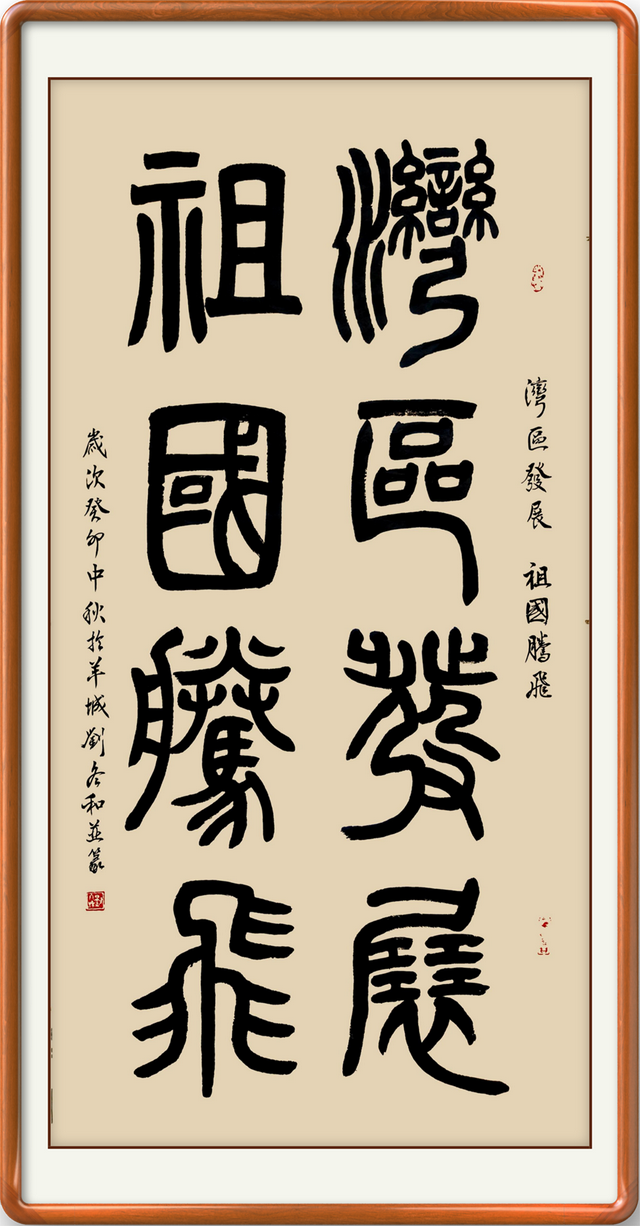 灣區發展 祖國騰飛
灣區發展
祖國騰飛
歲次癸卯中秋於羊城劉冬和並篆